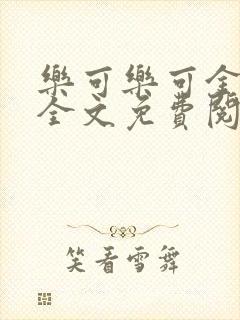 樂可樂可全
全文免費閱
笑看雪舞